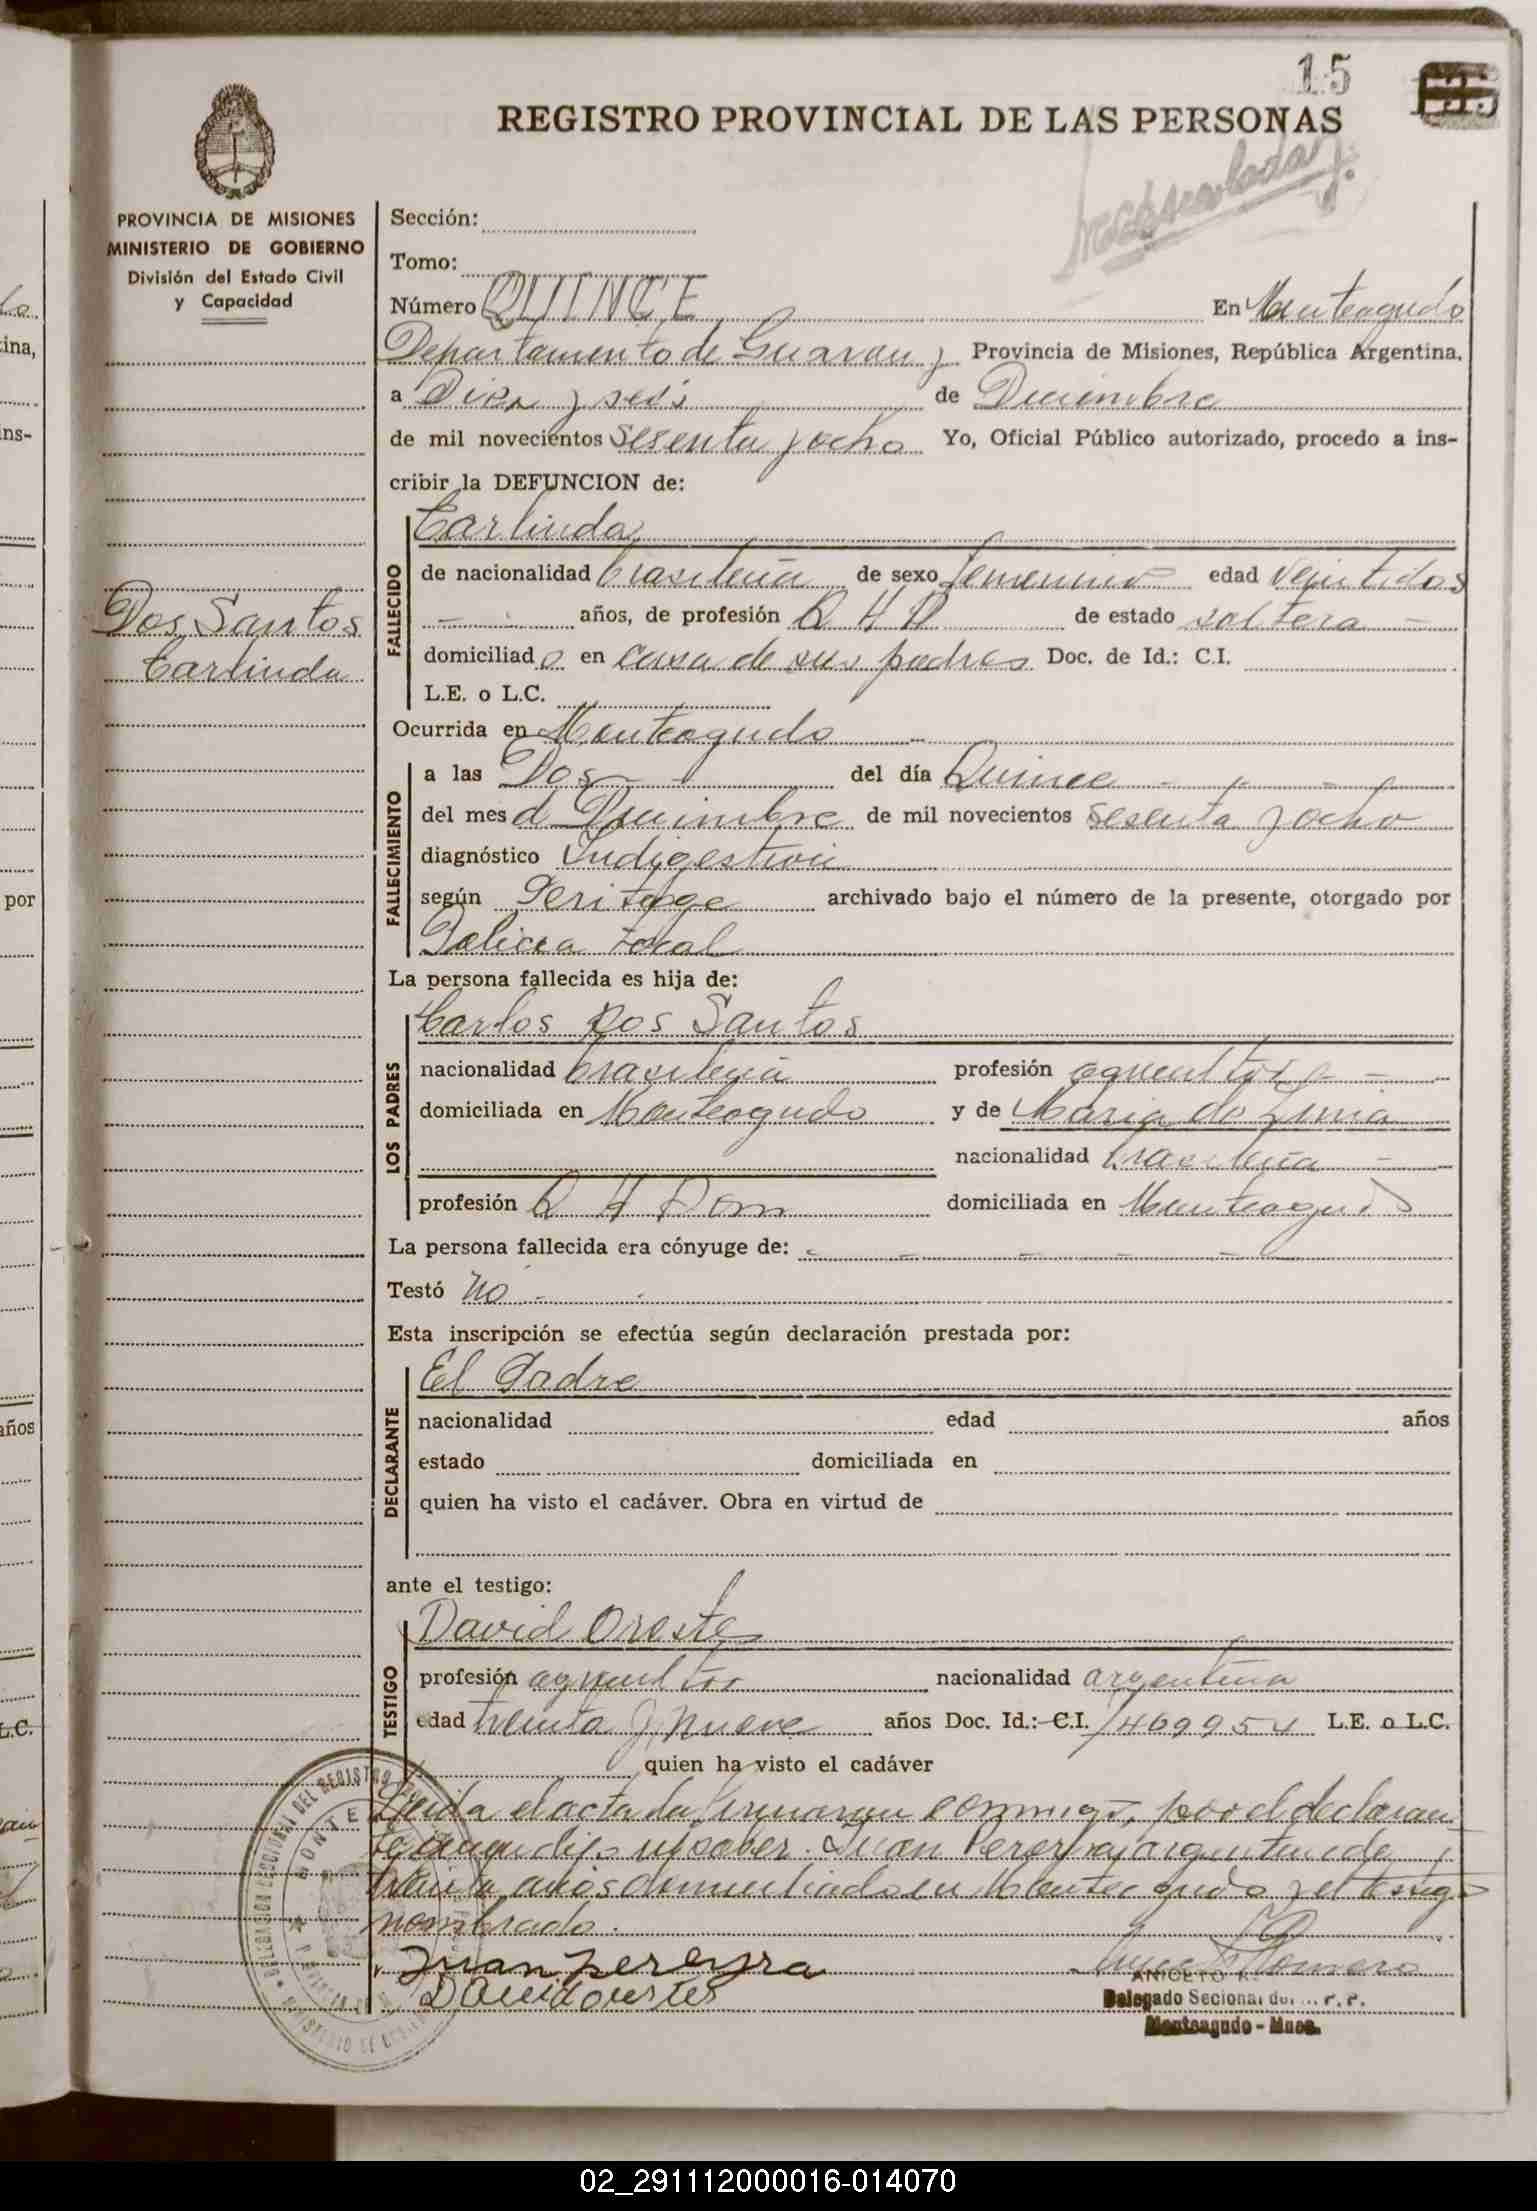 15
REGISTRO PROVINCIAL DE LAS PERSONAS
PROVINCIA DE MISIONES
MINISTERIO DE GOBIERNO
División del Estado Civil
y Capacidad
Dos Santos
Carlinda
Sección:
Tomo:
Número QUINCE En Monteagudo
Departamento de Guarany Provincia de Misiones, República Argentina,
a Diez y seis de Diciembre
de mil novecientos sesenta y ocho Yo, Oficial Público autorizado, procedo a ins-
cribir la DEFUNCION de:
Carlinda
FALLECIDO
de nacionalidad brasileña de sexo femenino edad veintidos
años, de profesión Q H D de estado soltera
domiciliado en casa de sus padres Doc. de Id.: C.I.
L.E. o L.C.
Ocurrida en Monteagudo
FALLECIMIENTO
a las Dos del día Quince
del mes d Diciembre de mil novecientos sesenta y ocho
diagnóstico Indigestion
según Peritage archivado bajo el número de la presente, otorgado por
Policia Local
La persona fallecida es hija de:
LOS PADRES
Carlos Dos Santos
nacionalidad brasileña profesión agricultor
domiciliada en Monteagudo y de Maria do
nacionalidad brasileña
profesión Q H Dom domiciliada en Monteagudo
La persona fallecida era cónyuge de:
Testó no
Esta inscripción se efectúa según declaración prestada por:
DECLARANTE
El Padre
nacionalidad edad años
estado domiciliada en
quien ha visto el cadáver. Obra en virtud de
ante el testigo:
TESTIGO
David Orestes
profesión agricultor nacionalidad argentina
edad treinta y nueve años Doc. Id.: C.I. 7469954 L.E. o L.C.
quien ha visto el cadáver
Leida el acta la firmaran conmigo, por el declaran
te quien dijo no saber. Juan Pereyra argentino de
treinta años domiciliado en Monteagudo y el testigo
nombrado.
Juan Pereyra
David Orestes
Aniceto R Romero
ANICETO R.
Delegado Secional del R. P. P.
Monteagudo - Mnes.
02_291112000016-014070